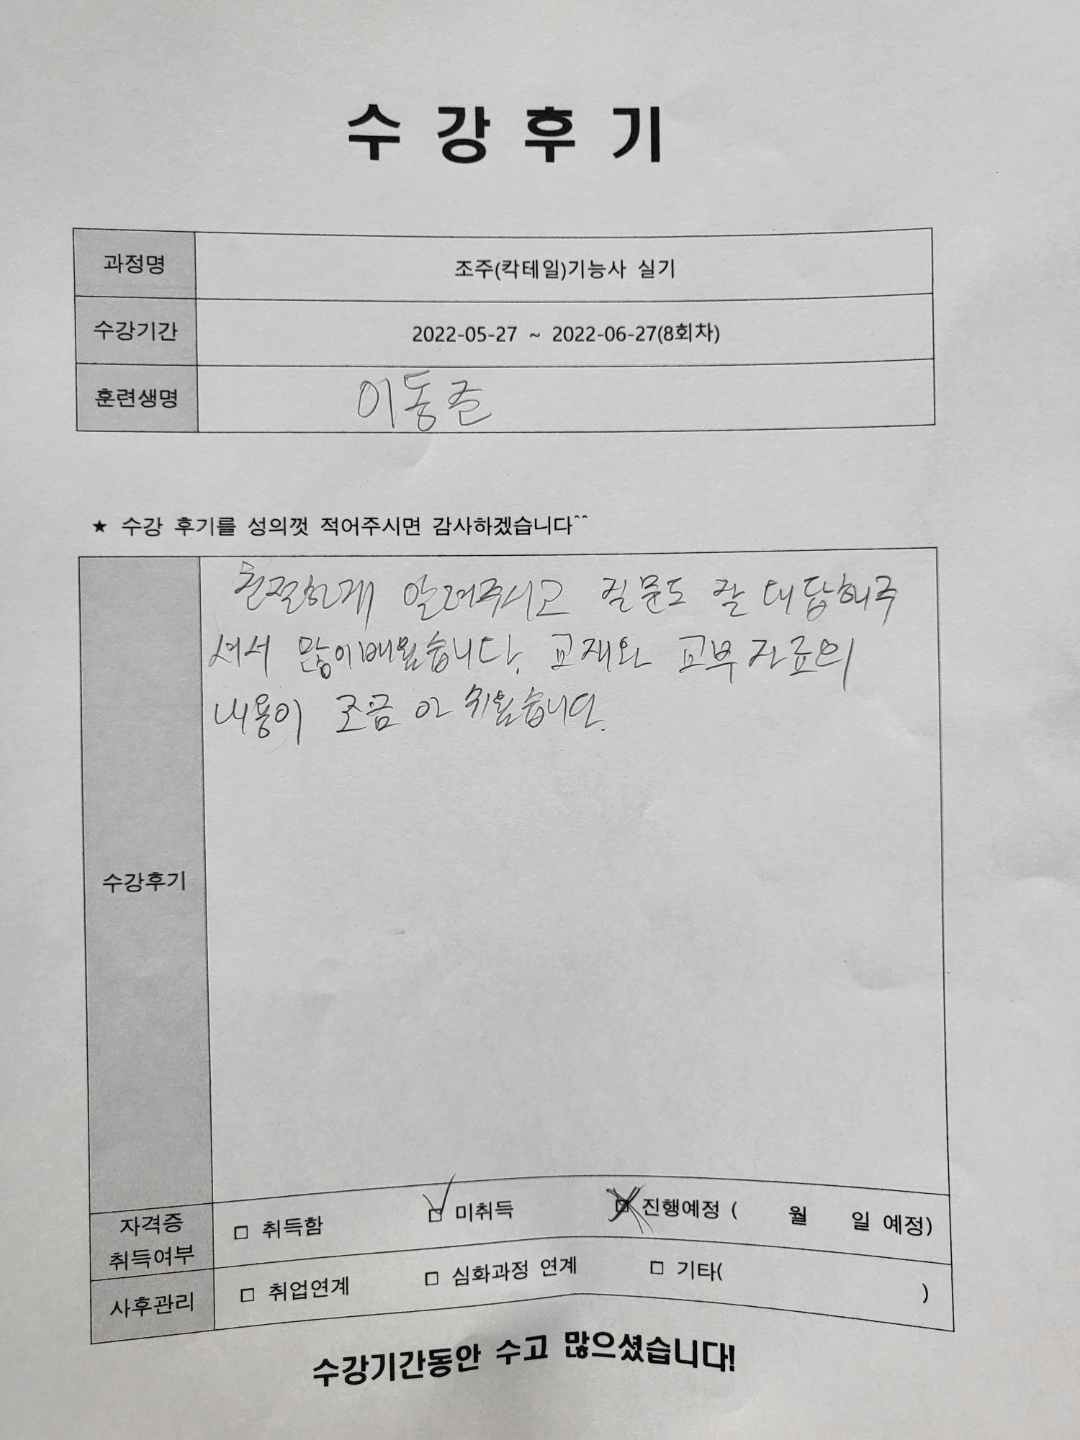 수강후기
과정명 조주(칵테일)기능사 실기
수강기간 2022-05-27 ~ 2022-06-27(8회차)
훈련생명 이동준
★ 수강 후기를 성의껏 적어주시면 감사하겠습니다^^
친절하게 알려주시고 질문도 잘 대답해주
셔서 많이배웠습니다. 교재와 교부자료의
내용이 조금 아쉬웠습니다.
수강후기
자격증
취득여부
□ 취득함 □ 미취득 □ 진행예정 ( 월 일 예정)
사후관리 □ 취업연계 □ 심화과정 연계 □ 기타( )
수강기간동안 수고 많으셨습니다!